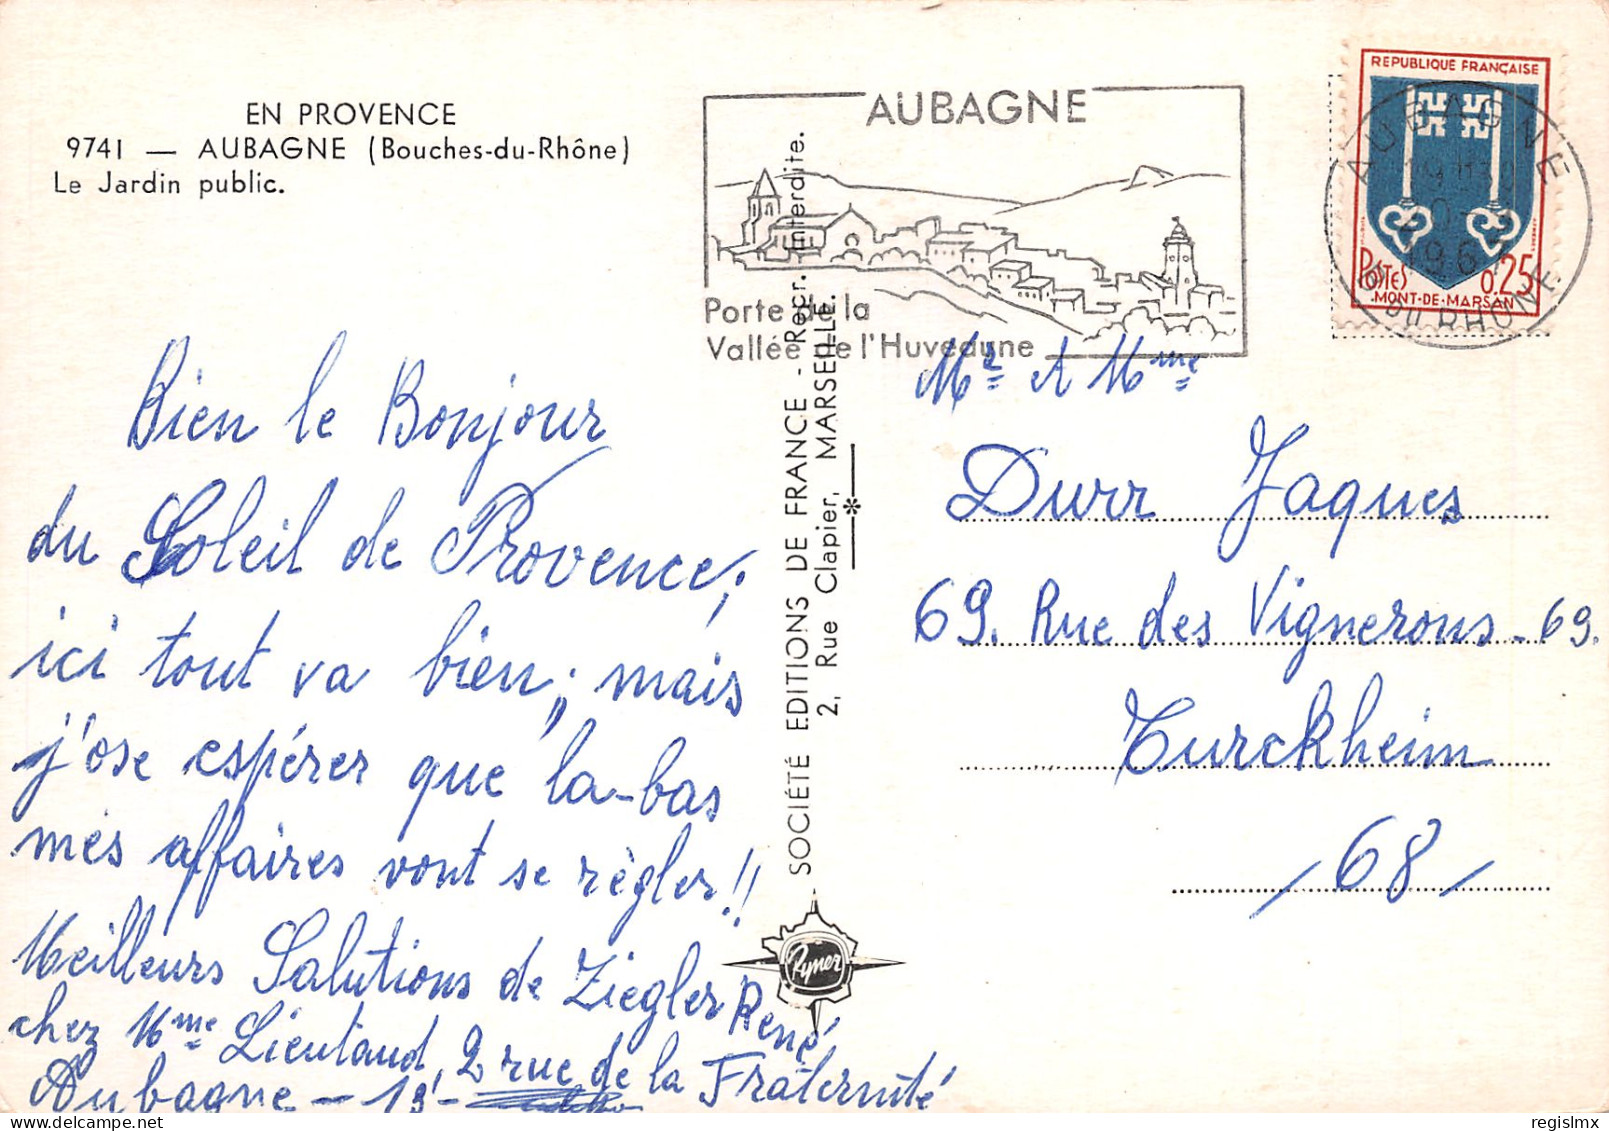 EN PROVENCE
9741 — AUBAGNE (Bouches-du-Rhône)
Le Jardin public.
AUBAGNE
Porte de la
Vallée de l'Huveaune
REPUBLIQUE FRANÇAISE
POSTES 0,25
MONT-DE-MARSAN
AUBAGNE
BDU RHONE
Bien le Bonjour
du Soleil de Provence;
ici tout va bien; mais
j'ose espérer que la-bas
mes affaires vont se règler!!
Meilleurs Salutions de Ziegler René
chez Mme Lieutaud, 2 rue de la Fraternité
Aubagne - 13 -
SOCIÉTÉ EDITIONS DE FRANCE - Repr. Interdite.
2, Rue Clapier, MARSEILLE.
Ryner
Mr et Mme
Durr Jaques
69. Rue des Vignerons - 69.
Turckheim
/68/
regislmx